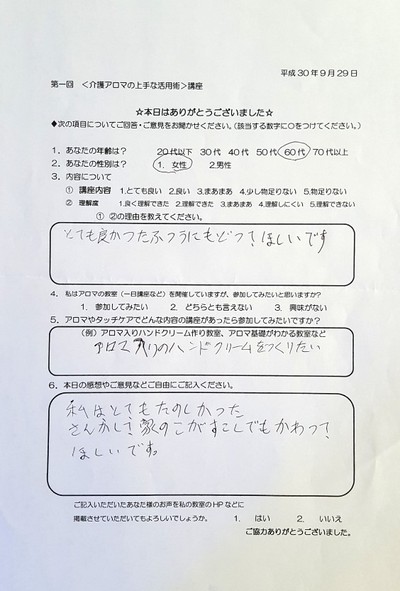 平成30年9月29日
第一回 <介護アロマの上手な活用術>講座
☆本日はありがとうございました☆
◆次の項目についてご回答・ご意見をお聞かせください。(該当する数字に○をつけてください。)
1. あなたの年齢は? 20代以下 30代 40代 50代 60代 70代以上
2. あなたの性別は? 1. 女性 2.男性
3. 内容について
① 講座内容 1.とても良い 2.良い 3.まあまあ 4.少し物足りない 5.物足りない
② 理解度 1.良く理解できた 2.理解できた 3.まあまあ 4.理解しにくい 5.理解できない
① ②の理由を教えてください。
とても良かったふつうにもどって ほしいです
4. 私はアロマの教室(一日講座など)を開催していますが、参加してみたいと思いますか?
1. 参加してみたい 2. どちらとも言えない 3. 興味がない
5. アロマやタッチケアでどんな内容の講座があったら参加してみたいですか?
(例)アロマ入りハンドクリーム作り教室、アロマ基礎がわかる教室など
アロマ入りのハンドクリームをつくりたい
6. 本日の感想やご意見などご自由にご記入ください。
私はとてもたのしかった
さんかして 家のこがすこしでもかわって
ほしいです。
ご記入いただいたあなた様のお声を私の教室のHPなどに
掲載させていただいてもよろしいでしょうか。 1. はい 2. いいえ
ご協力ありがとうございました。